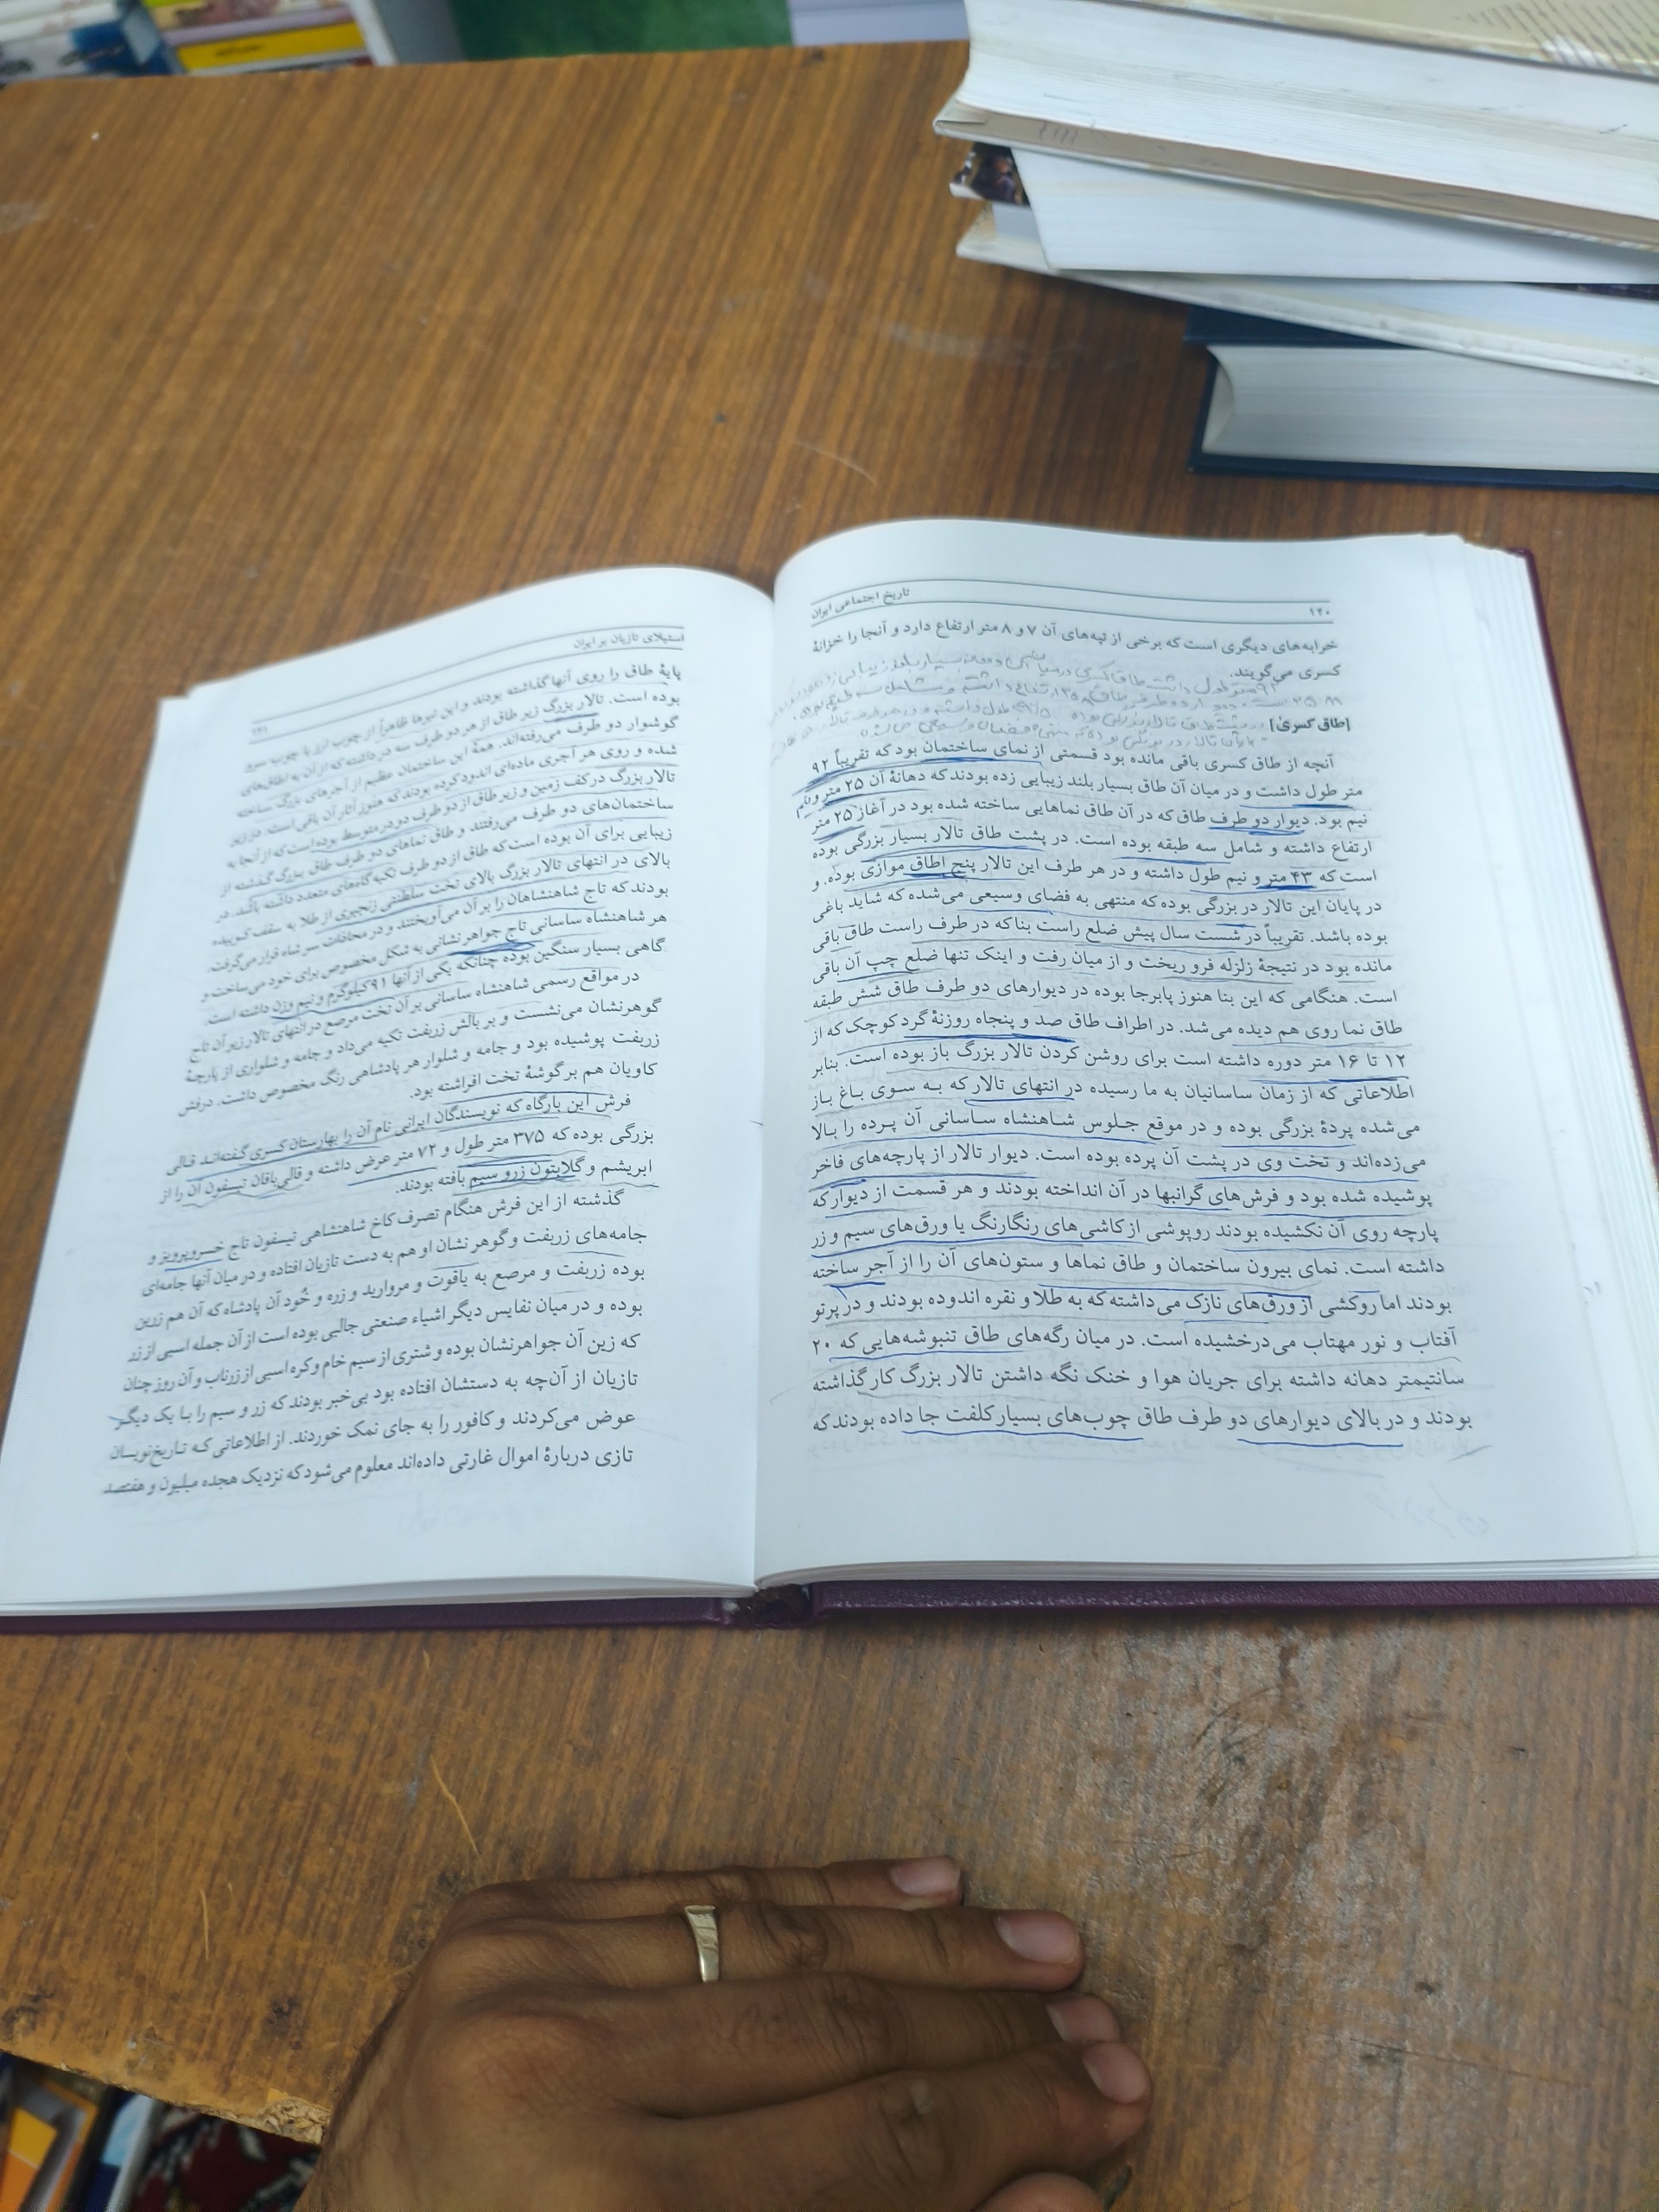 ۱۴۰
تاریخ اجتماعی ایران
خرابه‌های دیگری است که برخی از تپه‌های آن ۷ و ۸ متر ارتفاع دارد و آنجا را خزانهٔ
کسری می‌گویند.
[طاق کسری]
آنچه از طاق کسری باقی مانده بود قسمتی از نمای ساختمان بود که تقریباً ۹۲
متر طول داشت و در میان آن طاق بسیار بلند زیبایی زده بودند که دهانهٔ آن ۲۵ متر و
نیم بود. دیوار دو طرف طاق که در آن طاق نماهایی ساخته شده بود در آغاز ۲۵ متر
ارتفاع داشته و شامل سه طبقه بوده است. در پشت طاق تالار بسیار بزرگی بوده
است که ۴۳ متر و نیم طول داشته و در هر طرف این تالار پنج اطاق موازی بوده. و
در پایان این تالار در بزرگی بوده که منتهی به فضای وسیعی می‌شده که شاید باغی
بوده باشد. تقریباً در شست سال پیش ضلع راست بنا که در طرف راست طاق باقی
مانده بود در نتیجهٔ زلزله فرو ریخت و از میان رفت و اینک تنها ضلع چپ آن باقی
است. هنگامی که این بنا هنوز پابرجا بوده در دیوارهای دو طرف طاق شش طبقه
طاق نما روی هم دیده می‌شد. در اطراف طاق صد و پنجاه روزنهٔ گرد کوچک که از
۱۲ تا ۱۶ متر دوره داشته است برای روشن کردن تالار بزرگ باز بوده است. بنابر
اطلاعاتی که از زمان ساسانیان به ما رسیده در انتهای تالار که به سوی باغ باز
می‌شده پردهٔ بزرگی بوده و در موقع جلوس شاهنشاه ساسانی آن پرده را بالا
می‌زده‌اند و تخت وی در پشت آن پرده بوده است. دیوار تالار از پارچه‌های فاخر
پوشیده شده بود و فرش‌های گرانبها در آن انداخته بودند و هر قسمت از دیوار که
پارچه روی آن نکشیده بودند روپوشی از کاشی‌های رنگارنگ یا ورق‌های سیم و زر
داشته است. نمای بیرون ساختمان و طاق نماها و ستون‌های آن را از آجر ساخته
بودند اما روکشی از ورق‌های نازک می‌داشته که به طلا و نقره اندوده بودند و در پرتو
آفتاب و نور مهتاب می‌درخشیده است. در میان رگه‌های طاق تنبوشه‌هایی که ۲۰
سانتیمتر دهانه داشته برای جریان هوا و خنک نگه داشتن تالار بزرگ کار گذاشته
بودند و در بالای دیوارهای دو طرف طاق چوب‌های بسیار کلفت جا داده بودند که
استیلای تازیان بر ایران
۱۴۱
پایهٔ طاق را روی آنها گذاشته بودند و این تیرها ظاهراً از چوب ارز یا چوب سرو
بوده است. تالار بزرگ زیر طاق از هر دو طرف سه در داشته که از آن به اطاق‌های
گوشوار دو طرف می‌رفته‌اند. همهٔ این ساختمان عظیم از آجرهای بزرگ ساخته
شده و روی هر آجری ماده‌ای اندود کرده بودند که هنوز آثار آن باقی است. در زیر
تالار بزرگ در کف زمین و زیر طاق از دو طرف دو در متوسط بوده است که از آنجا به
ساختمان‌های دو طرف می‌رفتند و طاق نماهای دو طرف طاق بزرگ گذشته از
زیبایی برای آن بوده است که طاق از دو طرف تکیه‌گاه‌های متعدد داشته باشد. در
بالای در انتهای تالار بزرگ بالای تخت سلطنتی زنجیری از طلا به سقف کوبیده
بودند که تاج شاهنشاهان را بر آن می‌آویختند و در محاذات سر شاه قرار می‌گرفت.
هر شاهنشاه ساسانی تاج جواهر نشانی به شکل مخصوص برای خود می‌ساخت و
گاهی بسیار سنگین بوده چنانکه یکی از آنها ۹۱ کیلوگرم و نیم وزن داشته است.
در مواقع رسمی شاهنشاه ساسانی بر آن تخت مرصع در انتهای تالار زیر آن تاج
گوهرنشان می‌نشست و بر بالش زربفت تکیه می‌داد و جامه و شلواری از پارچهٔ
زربفت پوشیده بود و جامه و شلوار هر پادشاهی رنگ مخصوص داشت. درفش
کاویان هم بر گوشهٔ تخت افراشته بود.
فرش این بارگاه که نویسندگان ایرانی نام آن را بهارستان کسری گفته‌اند قالی
بزرگی بوده که ۳۷۵ متر طول و ۷۲ متر عرض داشته و قالی‌بافان تیسفون آن را از
ابریشم و گلابتون زر و سیم بافته بودند.
گذشته از این فرش هنگام تصرف کاخ شاهنشاهی تیسفون تاج خسروپرویز و
جامه‌های زربفت و گوهر نشان او هم به دست تازیان افتاده و در میان آنها جامه‌ای
بوده زربفت و مرصع به یاقوت و مروارید و زره و خُود آن پادشاه که آن هم زرین
بوده و در میان نفایس دیگر اشیاء صنعتی جالبی بوده است از آن جمله اسبی از زر
که زین آن جواهرنشان بوده و شتری از سیم خام و کره اسبی از زرناب و آن روز چنان
تازیان از آن‌چه به دستشان افتاده بود بی‌خبر بودند که زر و سیم را با یک دیگر
عوض می‌کردند و کافور را به جای نمک خوردند. از اطلاعاتی که تاریخ‌نویسان
تازی دربارهٔ اموال غارتی داده‌اند معلوم می‌شود که نزدیک هجده میلیون و هفتصد